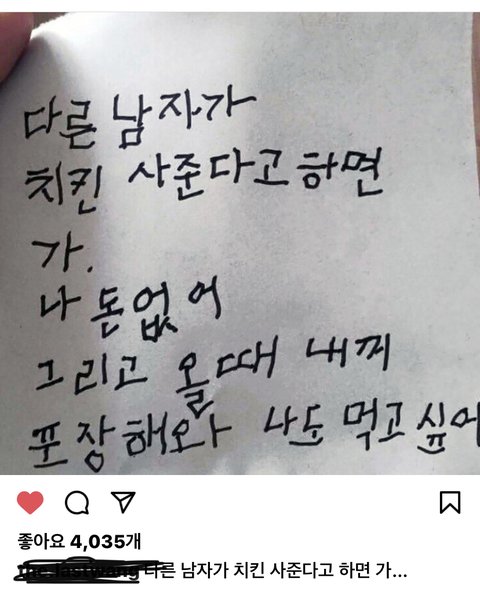 다른 남자가
치킨 사준다고 하면
가.
나 돈없어
그리고 올때 내꺼
포장해와 나도 먹고싶어
좋아요 4,035개
다른 남자가 치킨 사준다고 하면 가...